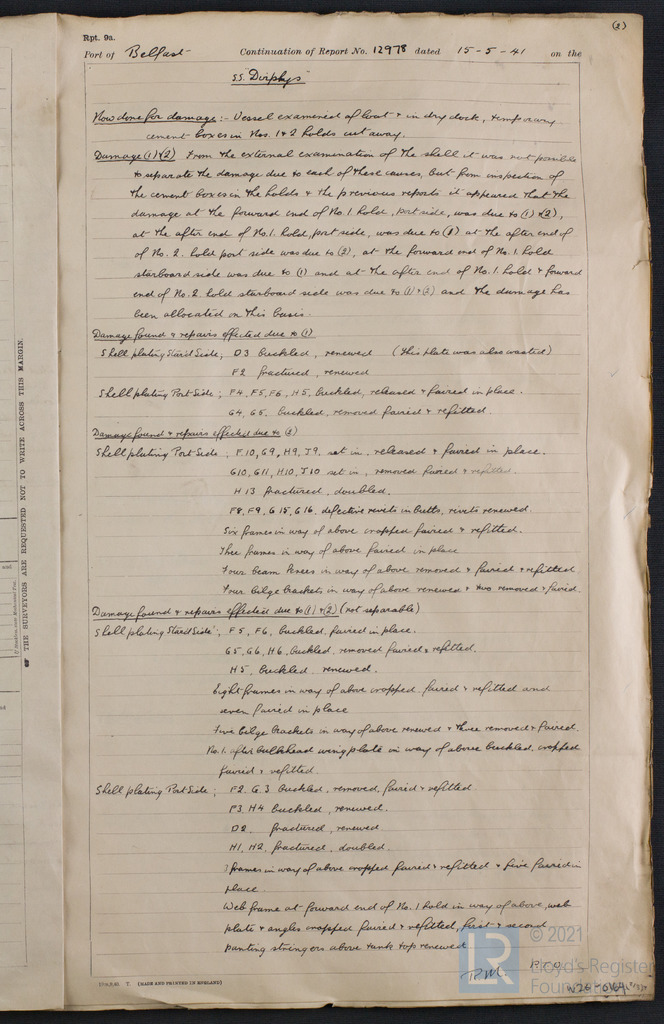 (2)
Rpt. 9a.
Port of Belfast Continuation of Report No. 12978 dated 15-5-41 on the
S.S. "Dirphys"
Now done for damage :- Vessel examined afloat & in dry dock, temporary
cement boxes in Nos. 1 & 2 holds cut away.
Damage (1) & (2) From the external examination of the shell it was not possible
to separate the damage due to each of these causes, but from inspection of
the cement boxes in the holds & the previous reports it appeared that the
damage at the forward end of No. 1 hold, port side, was due to (1) & (2),
at the after end of No. 1. hold, port side, was due to (1) at the after end of
of No. 2. hold port side was due to (2), at the forward end of No. 1. hold
starboard side was due to (1) and at the after end of No. 1. hold & forward
end of No. 2 hold starboard side was due to (1) & (2) and the damage has
been allocated on this basis.
Damage found & repairs effected due to (1)
Shell plating Star'd Side; D3 buckled, renewed (this plate was also wasted)
F2 fractured, renewed
Shell plating Port Side; F4, F5, F6, H5, buckled, released & faired in place.
G4, G5. buckled, removed faired & refitted.
Damage found & repairs effected due to (2)
Shell plating Port Side, F.10, G9, H9, J9, set in, released & faired in place.
G10, G11, H10, J10 set in, removed faired & refitted.
H13 fractured, doubled.
F8, F9, G15, G16, defective rivets in butts, rivets renewed.
Six frames in way of above cropped faired & refitted.
Three frames in way of above faired in place
Four beam knees in way of above removed & faired & refitted
Four bilge brackets in way of above renewed & two removed & faired
Damage found & repairs effected due to (1) & (2) (not separable)
Shell plating Star'd Side; F5, F6, buckled, faired in place.
G5, G6, H6, buckled, removed faired & refitted.
H5, buckled, renewed.
Eight frames in way of above cropped faired & refitted and
seven faired in place
Five bilge brackets in way of above renewed & three removed & faired.
No. 1. after bulkhead wing plate in way of above buckled, cropped
faired & refitted.
Shell plating Port Side; F2. G.3 buckled, removed, faired & refitted
F3, H4 buckled, renewed.
D2. fractured, renewed
H1, H2, fractured, doubled.
frames in way of above cropped faired & refitted & five faired in
place.
Web frame at forward end of No. 1 hold in way of above, web
plate & angles cropped faired & refitted, first & second
panting stringers above tank top renewed
T. (MADE AND PRINTED IN ENGLAND)
THE SURVEYORS ARE REQUESTED NOT TO WRITE ACROSS THIS MARGIN.
LR © 2021
Lloyd's Register
Foundation